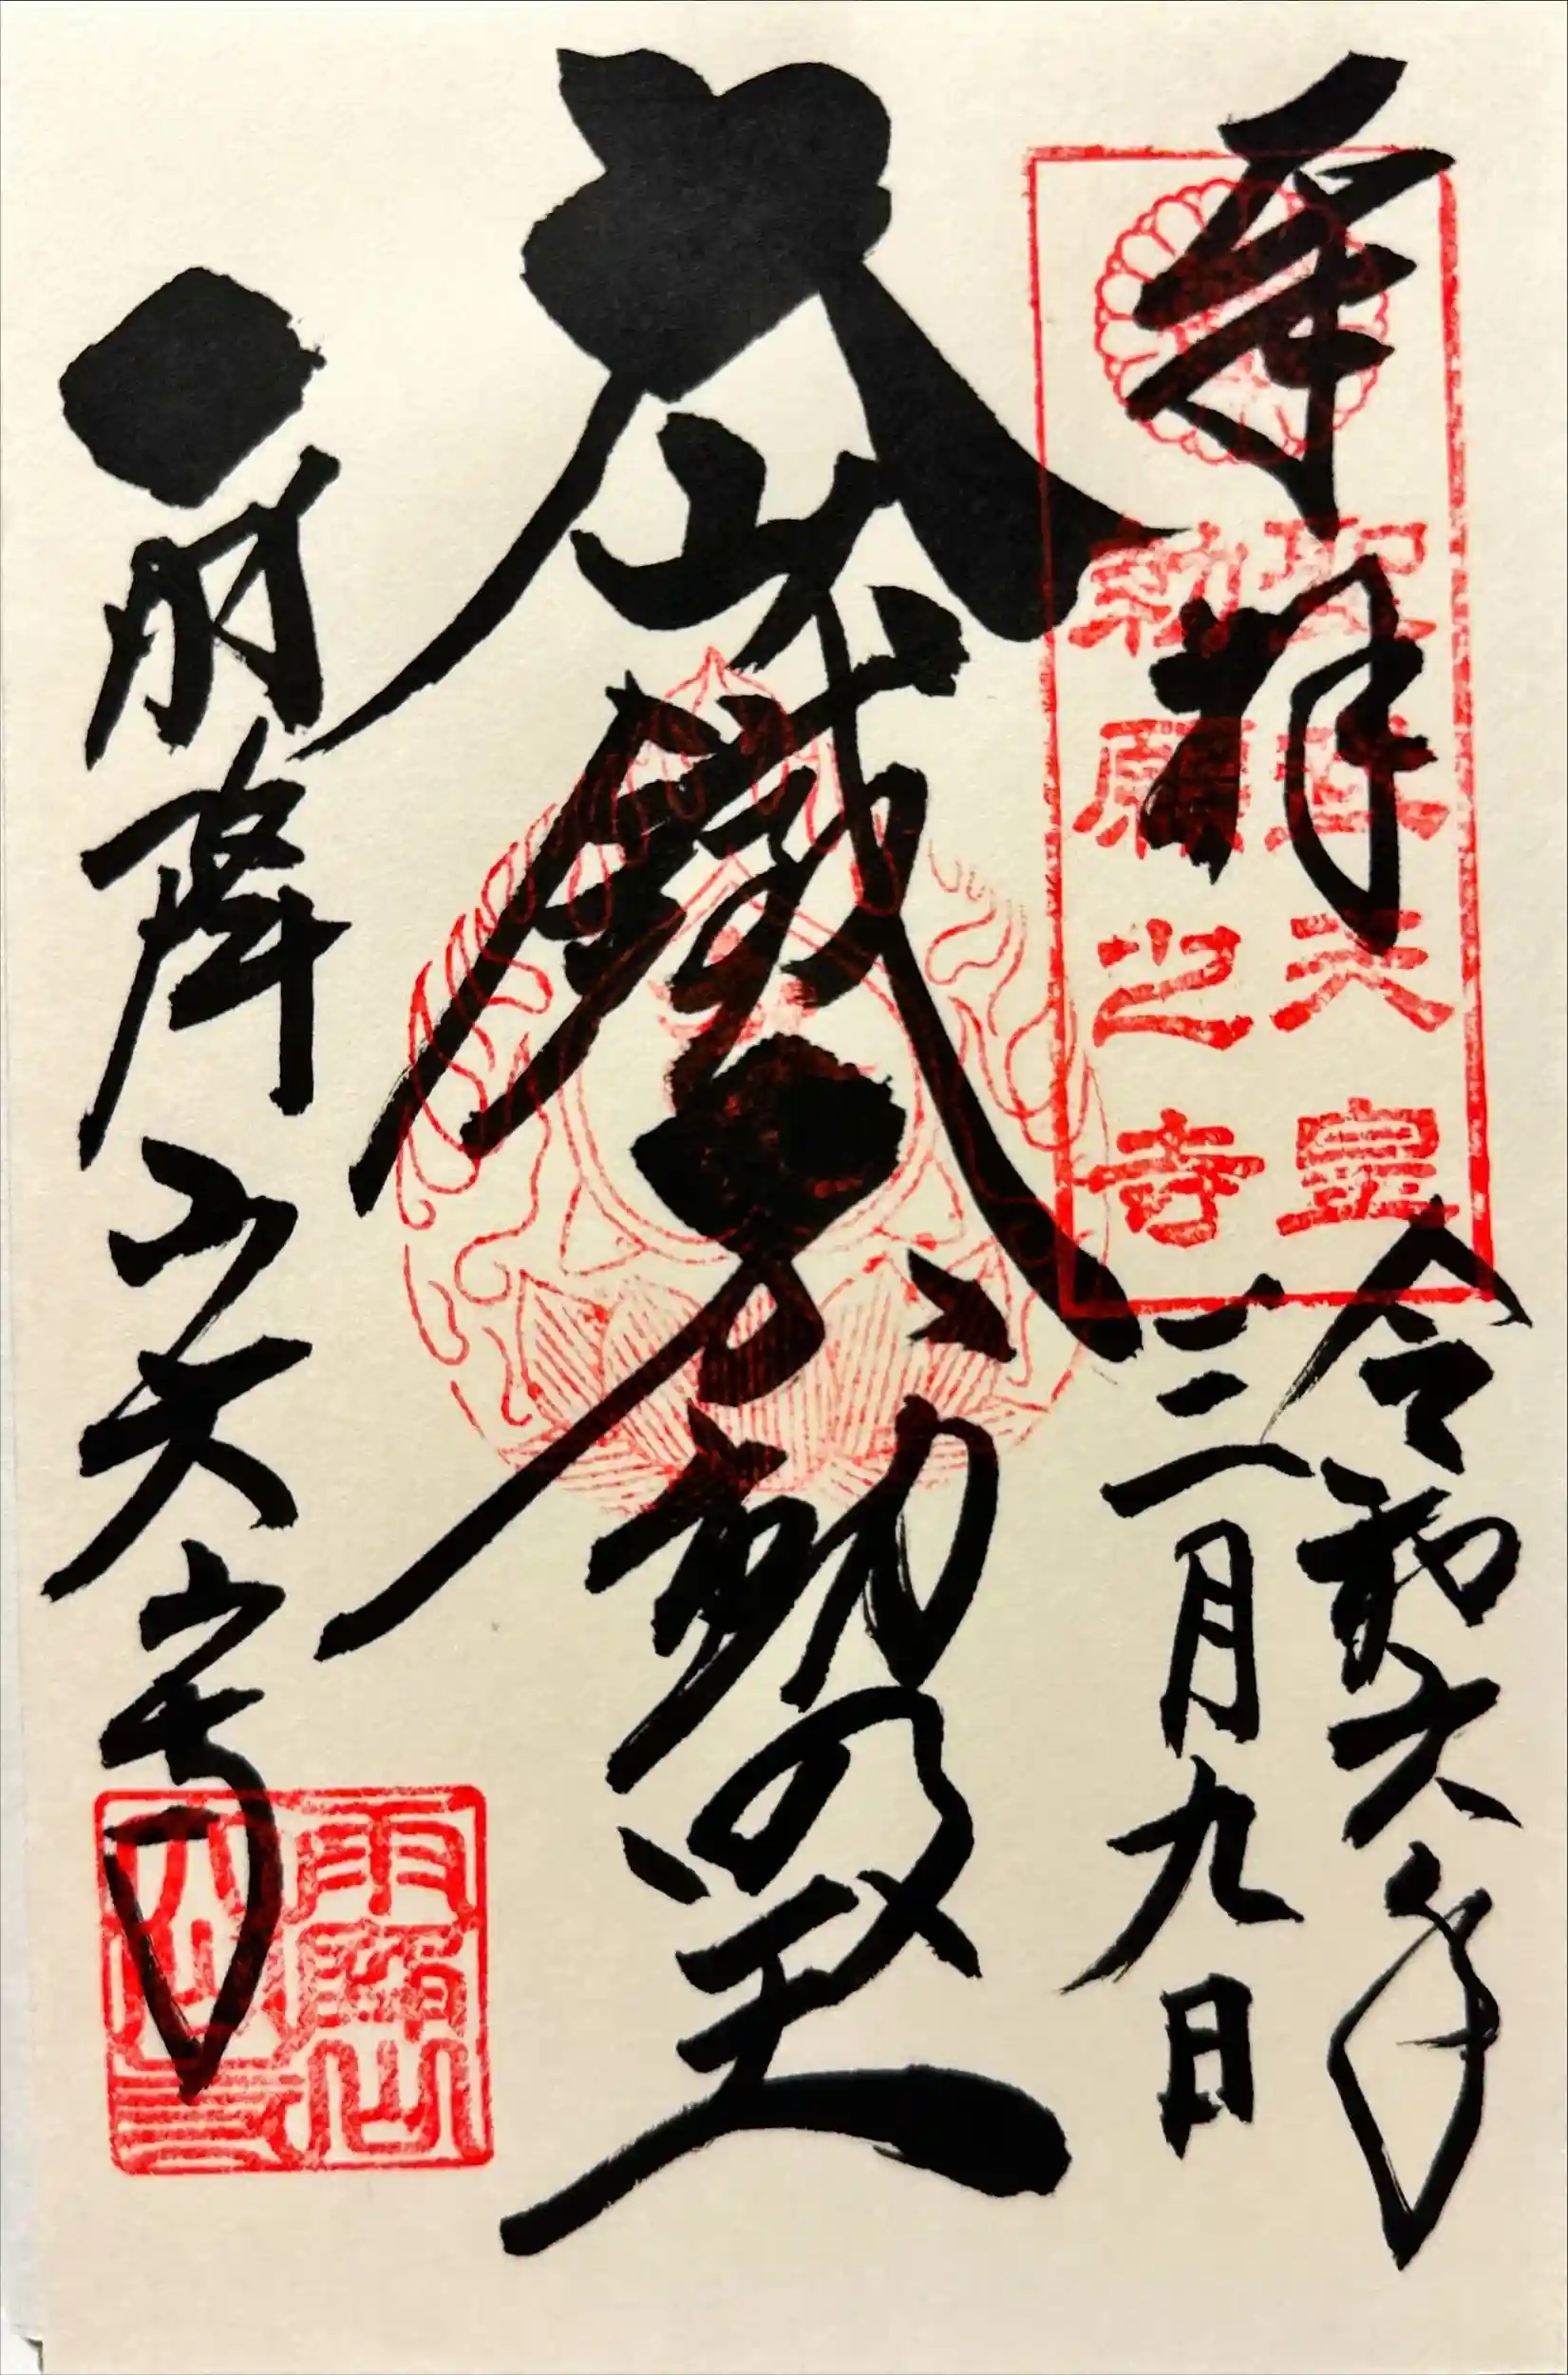 奉拝
聖武天皇
勅願之寺
令和六年
三月九日
大山鐵不動明王
雨降山大山寺
雨降山
大山寺